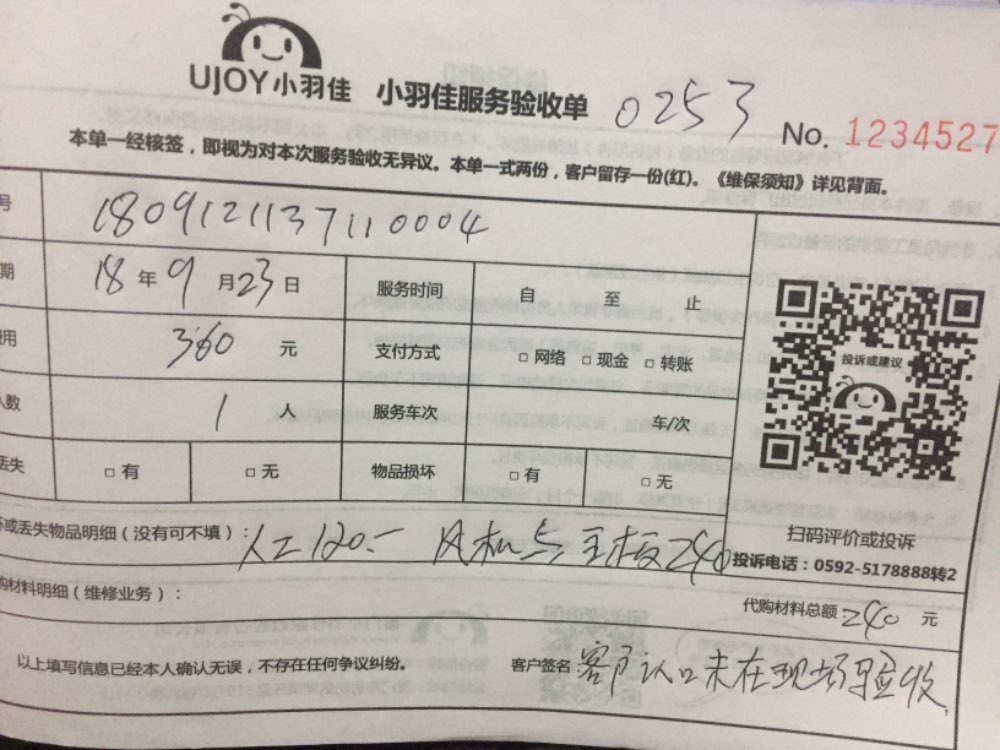 UJOY小羽佳 小羽佳服务验收单 0253 No. 1234527
本单一经核签，即视为对本次服务验收无异议。本单一式两份，客户留存一份(红)。《维保须知》详见背面。
号 1809121137110004
期 18 年 9 月 23 日 服务时间 自 至 止
用 360 元 支付方式 □ 网络 □ 现金 □ 转账
人数 1 人 服务车次 车/次
丢失 □ 有 □ 无 物品损坏 □ 有 □ 无
投诉或建议
扫码评价或投诉
投诉电话：0592-5178888转2
坏或丢失物品明细（没有可不填）：人工120.- 风机与主板240
购材料明细（维修业务）： 代购材料总额 240 元
以上填写信息已经本人确认无误，不存在任何争议纠纷。 客户签名：客户认口未在现场验收